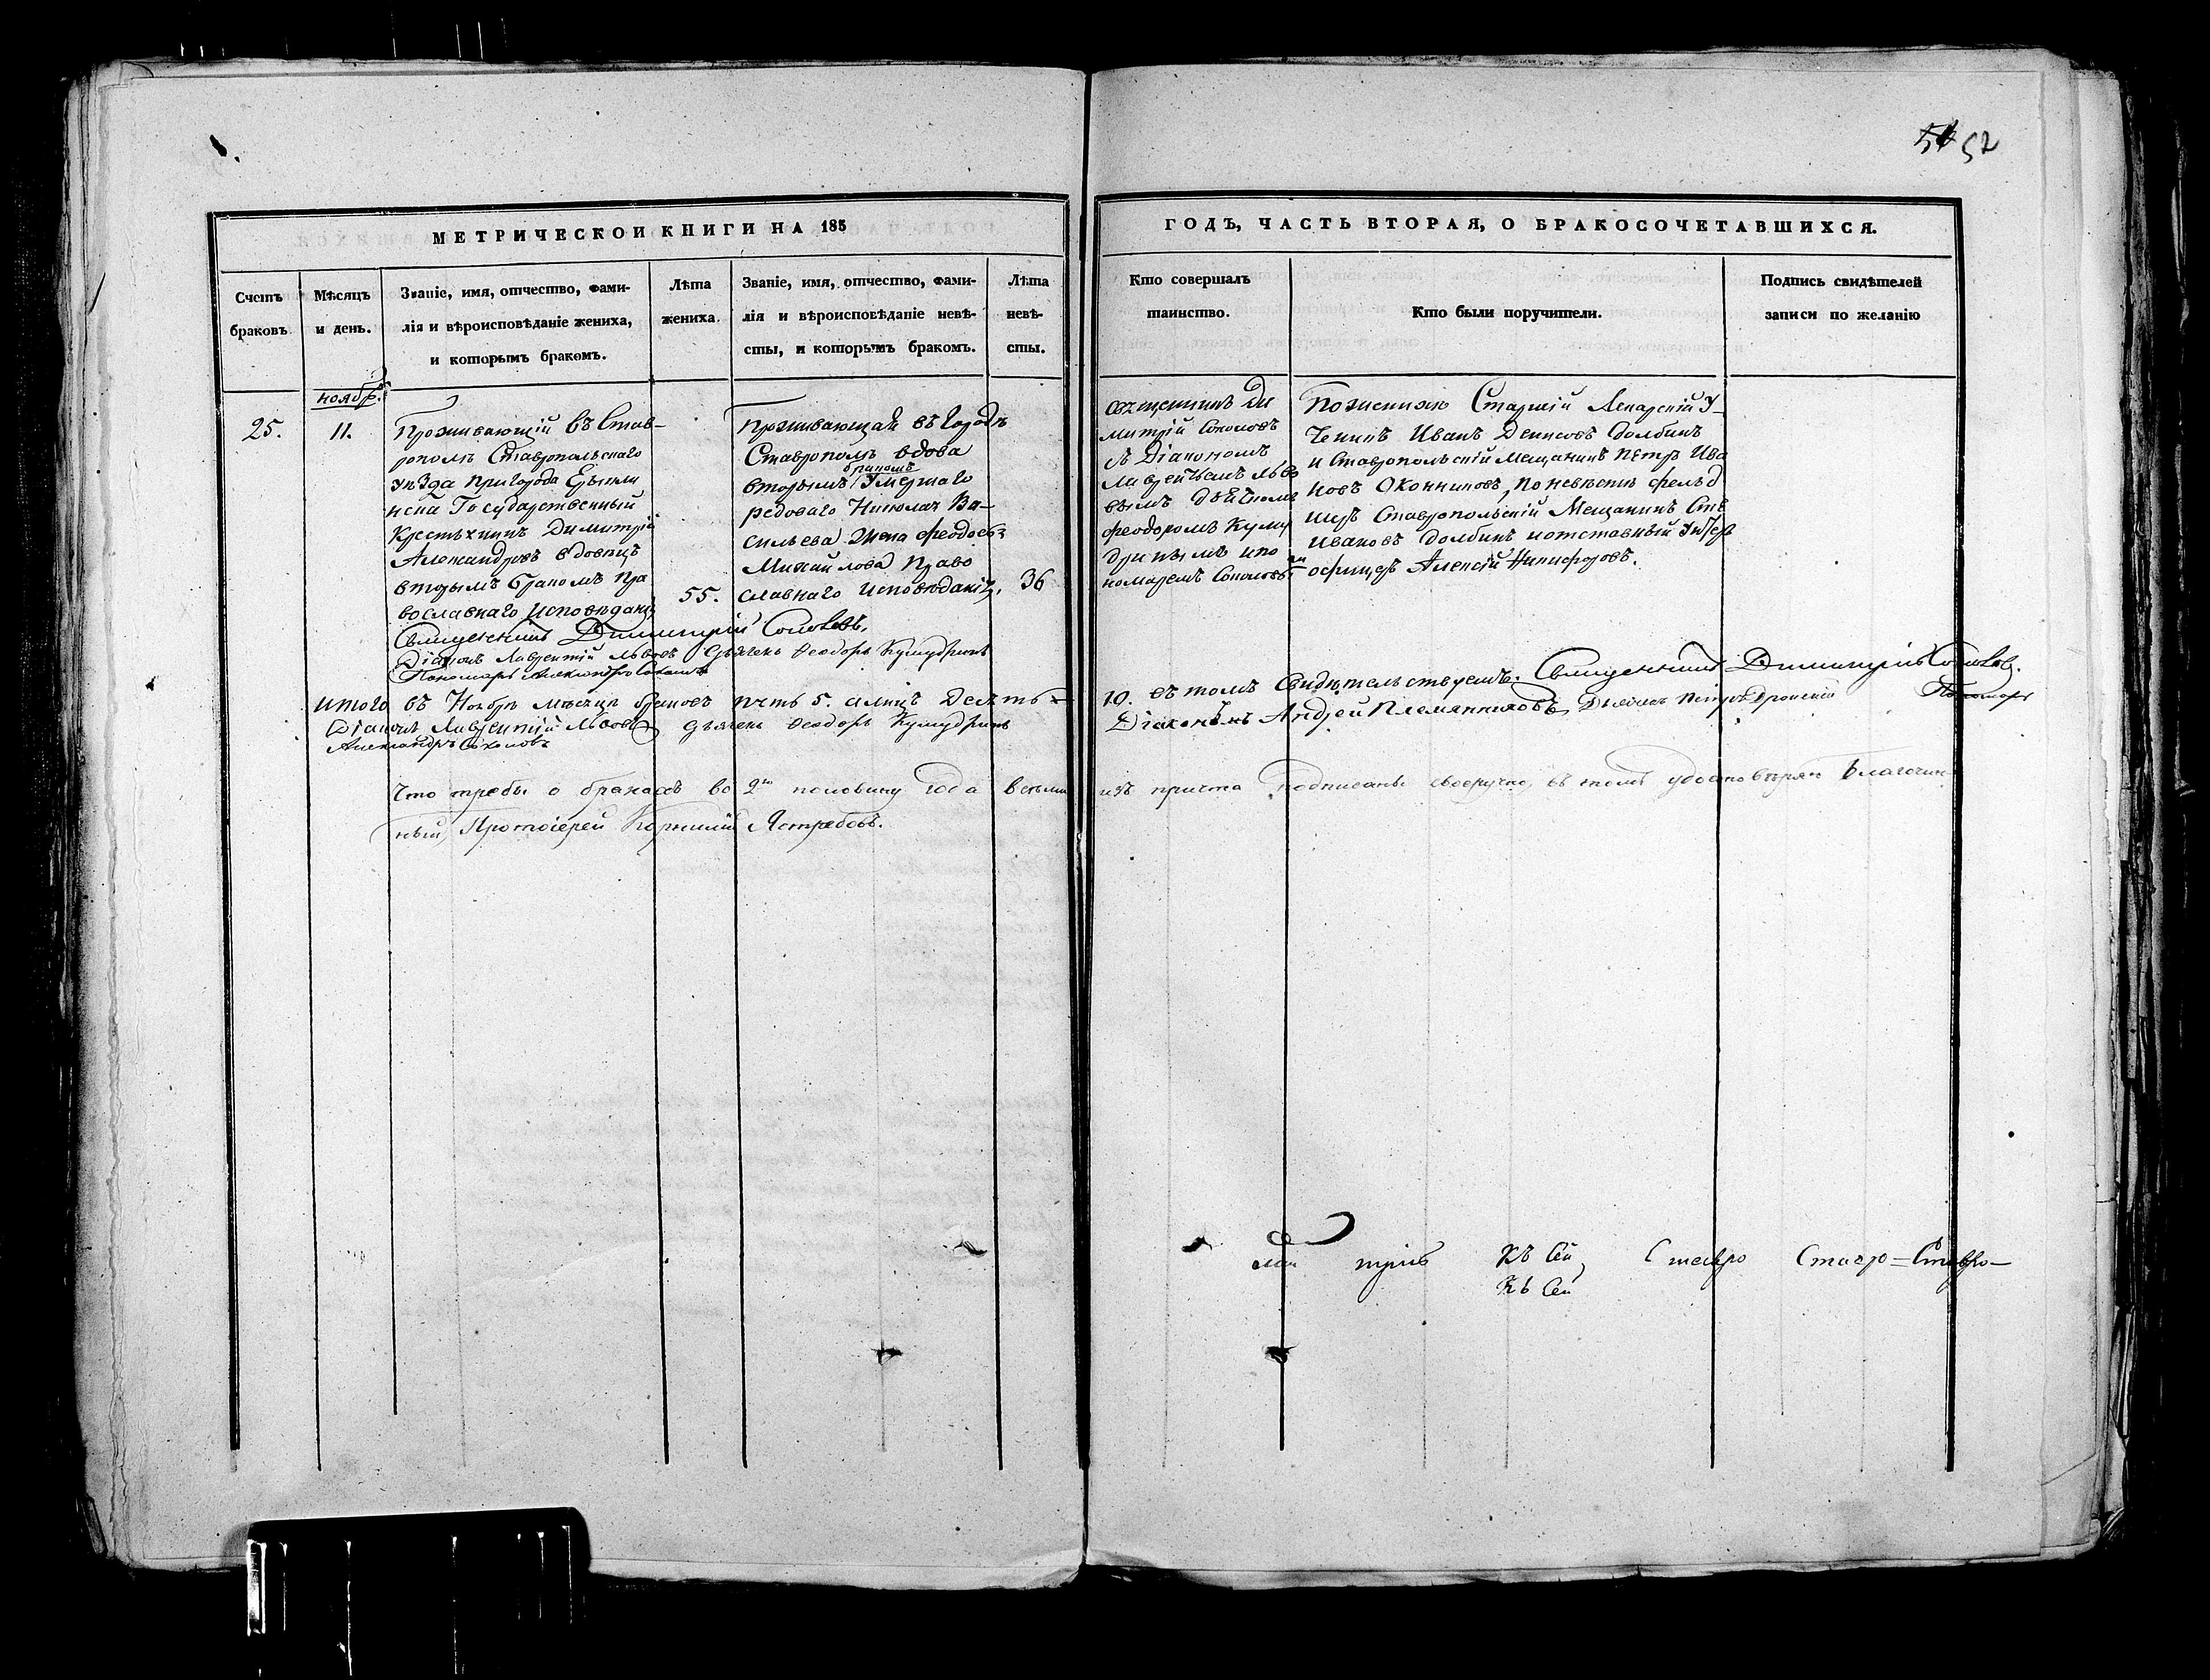 52
МЕТРИЧЕСКОЙ КНИГИ НА 185
ГОДЪ, ЧАСТЬ ВТОРАЯ, О БРАКОСОЧЕТАВШИХСЯ.
Счетъ
браковъ.
Мѣсяцъ
и день.
Званіе, имя, отчество, фами-
лія и вѣроисповѣданіе жениха,
и которымъ бракомъ.
Лѣта
жениха.
Званіе, имя, отчество, фами-
лія и вѣроисповѣданіе невѣ-
сты, и которымъ бракомъ.
Лѣта
невѣ-
сты.
Кто совершалъ
таинство.
Кто были поручители.
Подпись свидѣтелей
записи по желанію
ноябр.
25.
11.
Проживающій въ Став-
рополѣ Ставропольскаго
уѣзда пригорода Ерыкли
нска Государственный
Крестьянинъ Димитрій
Александровъ вдовецъ
вторымъ бракомъ пра
вославнаго исповѣданія
55.
Проживающая въ городѣ
Ставрополѣ вдова
бракомъ
вторымъ умершаго
рядоваго Николая Ва-
сильева жена Феодосья
Михайлова Право
славнаго исповѣданія,
36
Священникъ Ди
митрій Соколовъ
съ Діакономъ
Лаврентьемъ Льво
вымъ дьячкомъ
Феодоромъ Куму
дринымъ и по
номаремъ Соколовы
мъ
По женихѣ Старшій Лекарскій у-
ченикъ Иванъ Денисовъ Долбинъ
и Ставропольскій Мещанинъ Петръ Ива
новъ Оконниковъ, по невѣстѣ фельд
шеръ Ставропольскій Мещанинъ
Ивановъ Долбинъ и отставный Унтеръ
офицеръ Алексій Никифоровъ.
Священникъ Димитрій Соколовъ.
Діаконъ Лаврентій Львовъ Дьячекъ Феодоръ Кумудринъ
Пономарь Александръ Соколовъ
Итого въ Ноябрѣ мѣсяцѣ браковъ пять 5. а лицъ десять =
10. въ томъ Свидѣтельствуемъ: Священникъ Димитрій Соколовъ.
Діаконъ Лаврентій Львовъ Дьячекъ Феодоръ Кумудринъ
Діаконъ Андрей Племянниковъ, Дьячекъ Петръ Пономарь
Александръ Соколовъ
Что требы о бракахъ во 2ю половину года всѣми
изъ причта подписаны своеручно, въ томъ удостовѣряю Благочин-
ный, Протоіерей Корнилій Ястребовъ.
ми трій Къ Сей Ставро Ставро= Ставро-
Къ Сей